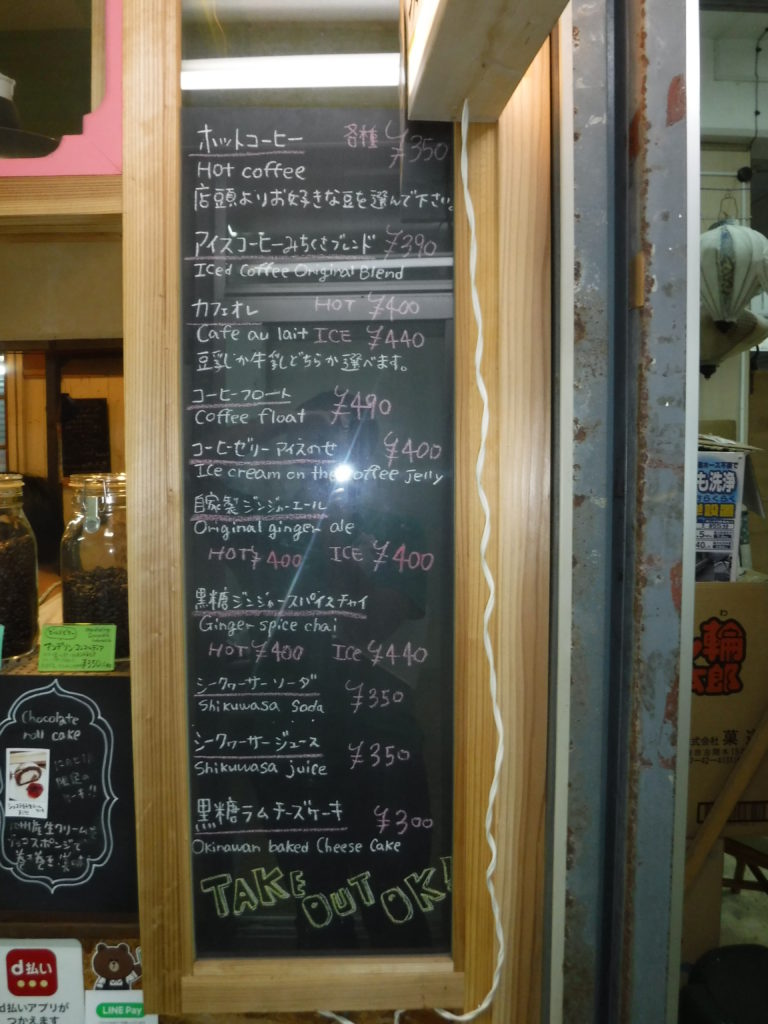 ホットコーヒー 各種 ¥350
Hot coffee
店頭よりお好きな豆を選んで下さい。
アイスコーヒーみちくさブレンド ¥390
Iced coffee Original Blend
カフェオレ HOT ¥400
Cafe au lait ICE ¥440
豆乳か牛乳どちらか選べます。
コーヒーフロート ¥490
Coffee float
コーヒーゼリーアイスのせ ¥400
Ice cream on the coffee jelly
自家製ジンジャーエール
Original ginger ale
HOT ¥400 ICE ¥400
黒糖ジンジャースパイスチャイ
Ginger spice chai
HOT ¥400 Ice ¥440
シークヮーサーソーダ ¥350
Shikuwasa soda
シークヮーサージュース ¥350
Shikuwasa juice
黒糖ラムチーズケーキ ¥300
Okinawan baked Cheese Cake
TAKE OUT OK!
Chocolate
roll cake
d払い
d払いアプリが
つかえます
LINE Pay
も洗浄
設置
輪
太郎